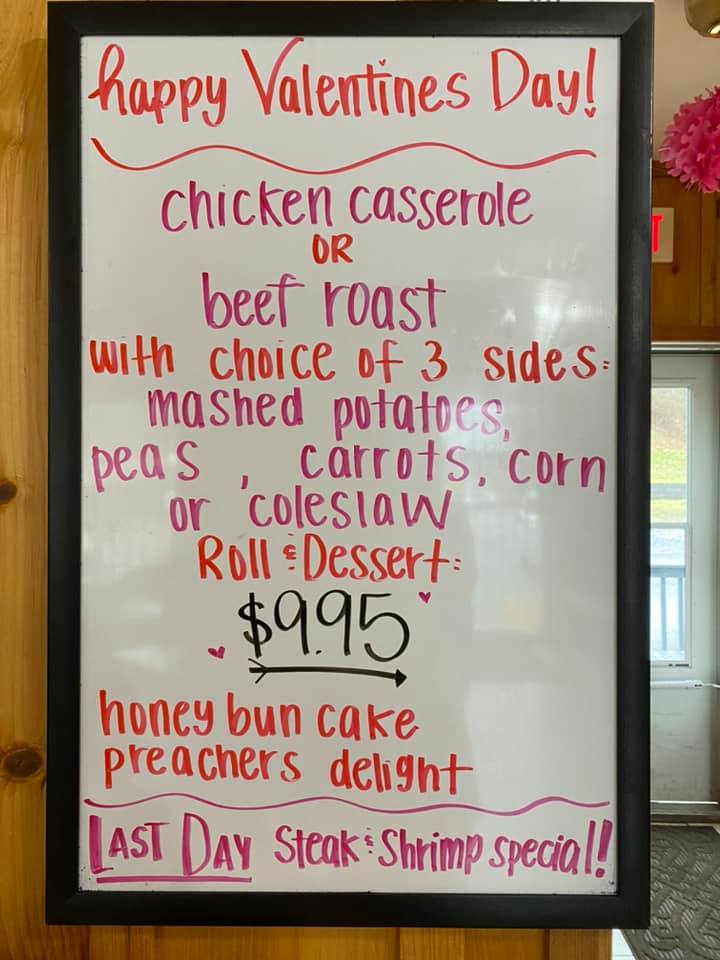 happy Valentines Day!
chicken casserole
OR
beef roast
with choice of 3 sides:
mashed potatoes,
peas , carrots, corn
or coleslaw
Roll & Dessert:
$9.95
honey bun cake
preachers delight
LAST DAY Steak & Shrimp special!